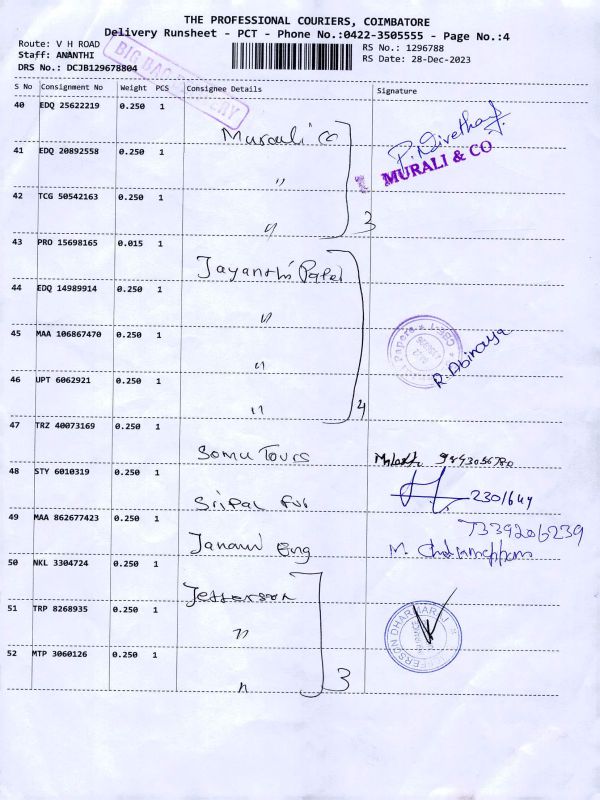 THE PROFESSIONAL COURIERS, COIMBATORE
Delivery Runsheet - PCT - Phone No.:0422-3505555 - Page No.:4
Route: V H ROAD
RS No.: 1296788
Staff: ANANTHI
RS Date: 28-Dec-2023
DRS No.: DCJB129678804
BIG BAG DELIVERY
S No Consignment No Weight PCS Consignee Details Signature
40 EDQ 25622219 0.250 1 Murali co
41 EDQ 20892558 0.250 1 "
MURALI & CO
42 TCG 50542163 0.250 1 " 3
43 PRO 15698165 0.015 1 Jayanthi Paper
44 EDQ 14989914 0.250 1 "
45 MAA 106867470 0.250 1 " R. Abinaya
46 UPT 6062921 0.250 1 " 4
47 TRZ 40073169 0.250 1 Somu Tours
48 STY 6010319 0.250 1 Sripal 2301649
49 MAA 862677423 0.250 1 Janani Eng 7339206239
50 NKL 3304724 0.250 1 Jefferson
51 TRP 8268935 0.250 1 "
52 MTP 3060126 0.250 1 " 3